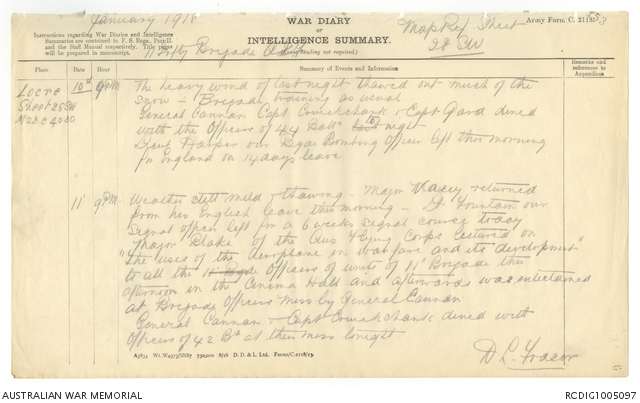 January 1918
WAR DIARY
or
INTELLIGENCE SUMMARY.
(Erase heading not required.)
Army Form C. 2118.
Map Ref Sheet
28 SW
Instructions regarding War Diaries and Intelligence
Summaries are contained in F. S. Regs., Part II.
and the Staff Manual respectively. Title pages
will be prepared in manuscript.
11 Infy Brigade
Place
Date
Hour
Summary of Events and Information
Remarks and
references to
Appendices
Locre
Sheet 28SW
10th
9pm
The heavy wind of last night thawed out much of the
snow - Brigade training as usual
General Cannan Capt Cruickshank & Capt Gard dined
with the Officers of 44 Battn to night
Lieut Harper our Bgde Bombing Officer left this morning
for England on 14 days leave
11
9pm
Weather still mild & thawing - Major Vasey returned
from his English leave this morning - Lt Fountain our
signal officer left for a 6 weeks signal course today
Major Blake of the Aus Flying Corps lectured on
"The uses of the Aeroplane in War fare and its development"
to all the Officers of units of 11 Brigade this
afternoon in the Cinema Hall and afterwards was entertained
at Brigade Officers Mess by General Cannan
General Cannan & Capt Cruickshank dined with
Officers of 42 Bn at their mess tonight
D L Fraser
D. D. & L., Ltd. Forms/C.2118/13.
AUSTRALIAN WAR MEMORIAL
RCDIG1005097